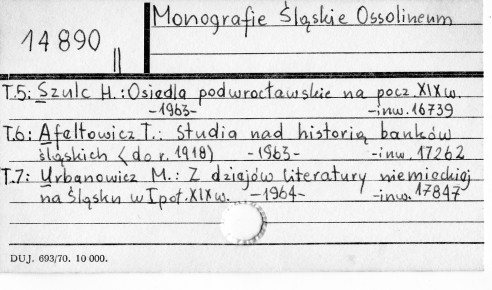 Monografie Śląskie Ossolineum
14 890
||
T.5: Szulc H.: Osiedla podwrocławskie na pocz. XIX w.
-1963- -inw. 16739
T.6: Afeltowicz T.: Studia nad historią banków
śląskich (do r. 1918) -1963- -inw. 17262
T.7: Urbanowicz M.: Z dziejów literatury niemieckiej
na Śląsku w I poł. XIX w. -1964- -inw. 17847
DUJ. 693/70. 10 000.